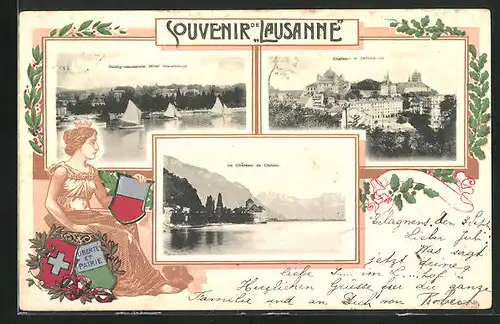 SOUVENIR DE „LAUSANNE“
Ouchy-Lausanne, Hôtel Beau-Rivage
Château et Cathédrale
Le Château de Chillon.
LIBERTÉ
ET
PATRIE
den 3. Sept.
Lieber Juli!
Was sagt
jetzt Deine
liebe im hof
Herzlichen Grüße für die ganze
Familie und an Dich von Robert